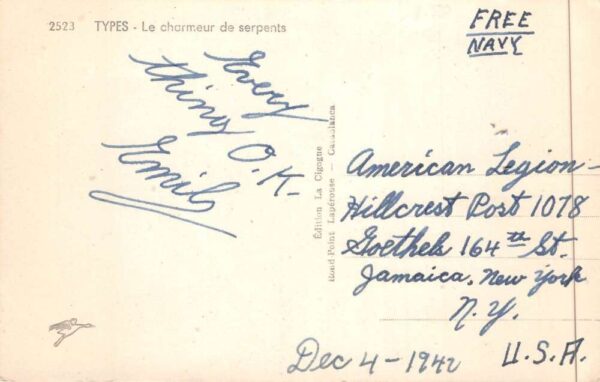 2523 TYPES - Le charmeur de serpents
FREE
NAVY
Every
thing O.K.
Emil
Édition La Cigogne
Rond-Point Lapérouse — Casablanca
American Legion-
Hillcrest Post 1078
Goethels 164th St.
Jamaica, New York
N.Y.
Dec 4-1942 U.S.A.